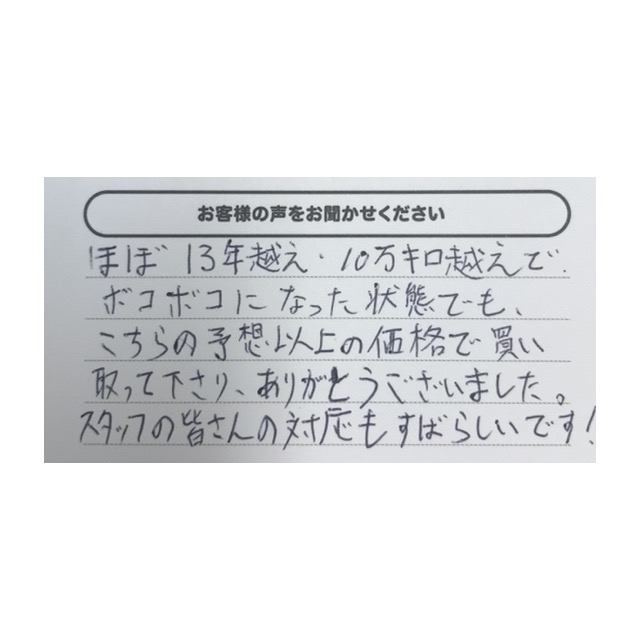 お客様の声をお聞かせください
ほぼ 13年越え・10万キロ越えで、
ボコボコになった状態でも、
こちらの予想以上の価格で買い
取って下さり、ありがとうございました。
スタッフの皆さんの対応もすばらしいです!